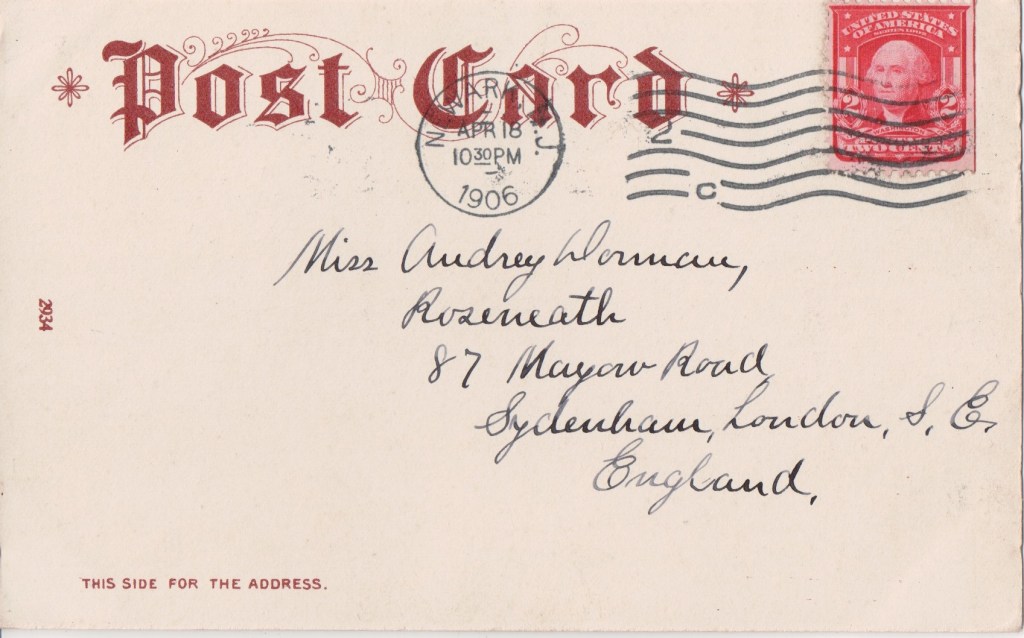 Post Card
UNITED STATES
OF AMERICA
SERIES 1902
2 2
WASHINGTON
TWO CENTS
NEWARK, N.J.
APR 18
10 30 PM
1906
2
C
Miss Audrey Dorman,
Roseneath
87 Mayow Road
Sydenham, London, S. E.
England.
2934
THIS SIDE FOR THE ADDRESS.